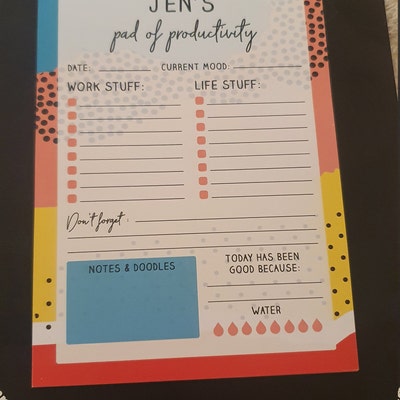 JEN'S
pad of productivity
DATE: CURRENT MOOD:
WORK STUFF: LIFE STUFF:
Don't forget :
NOTES & DOODLES
TODAY HAS BEEN
GOOD BECAUSE:
WATER